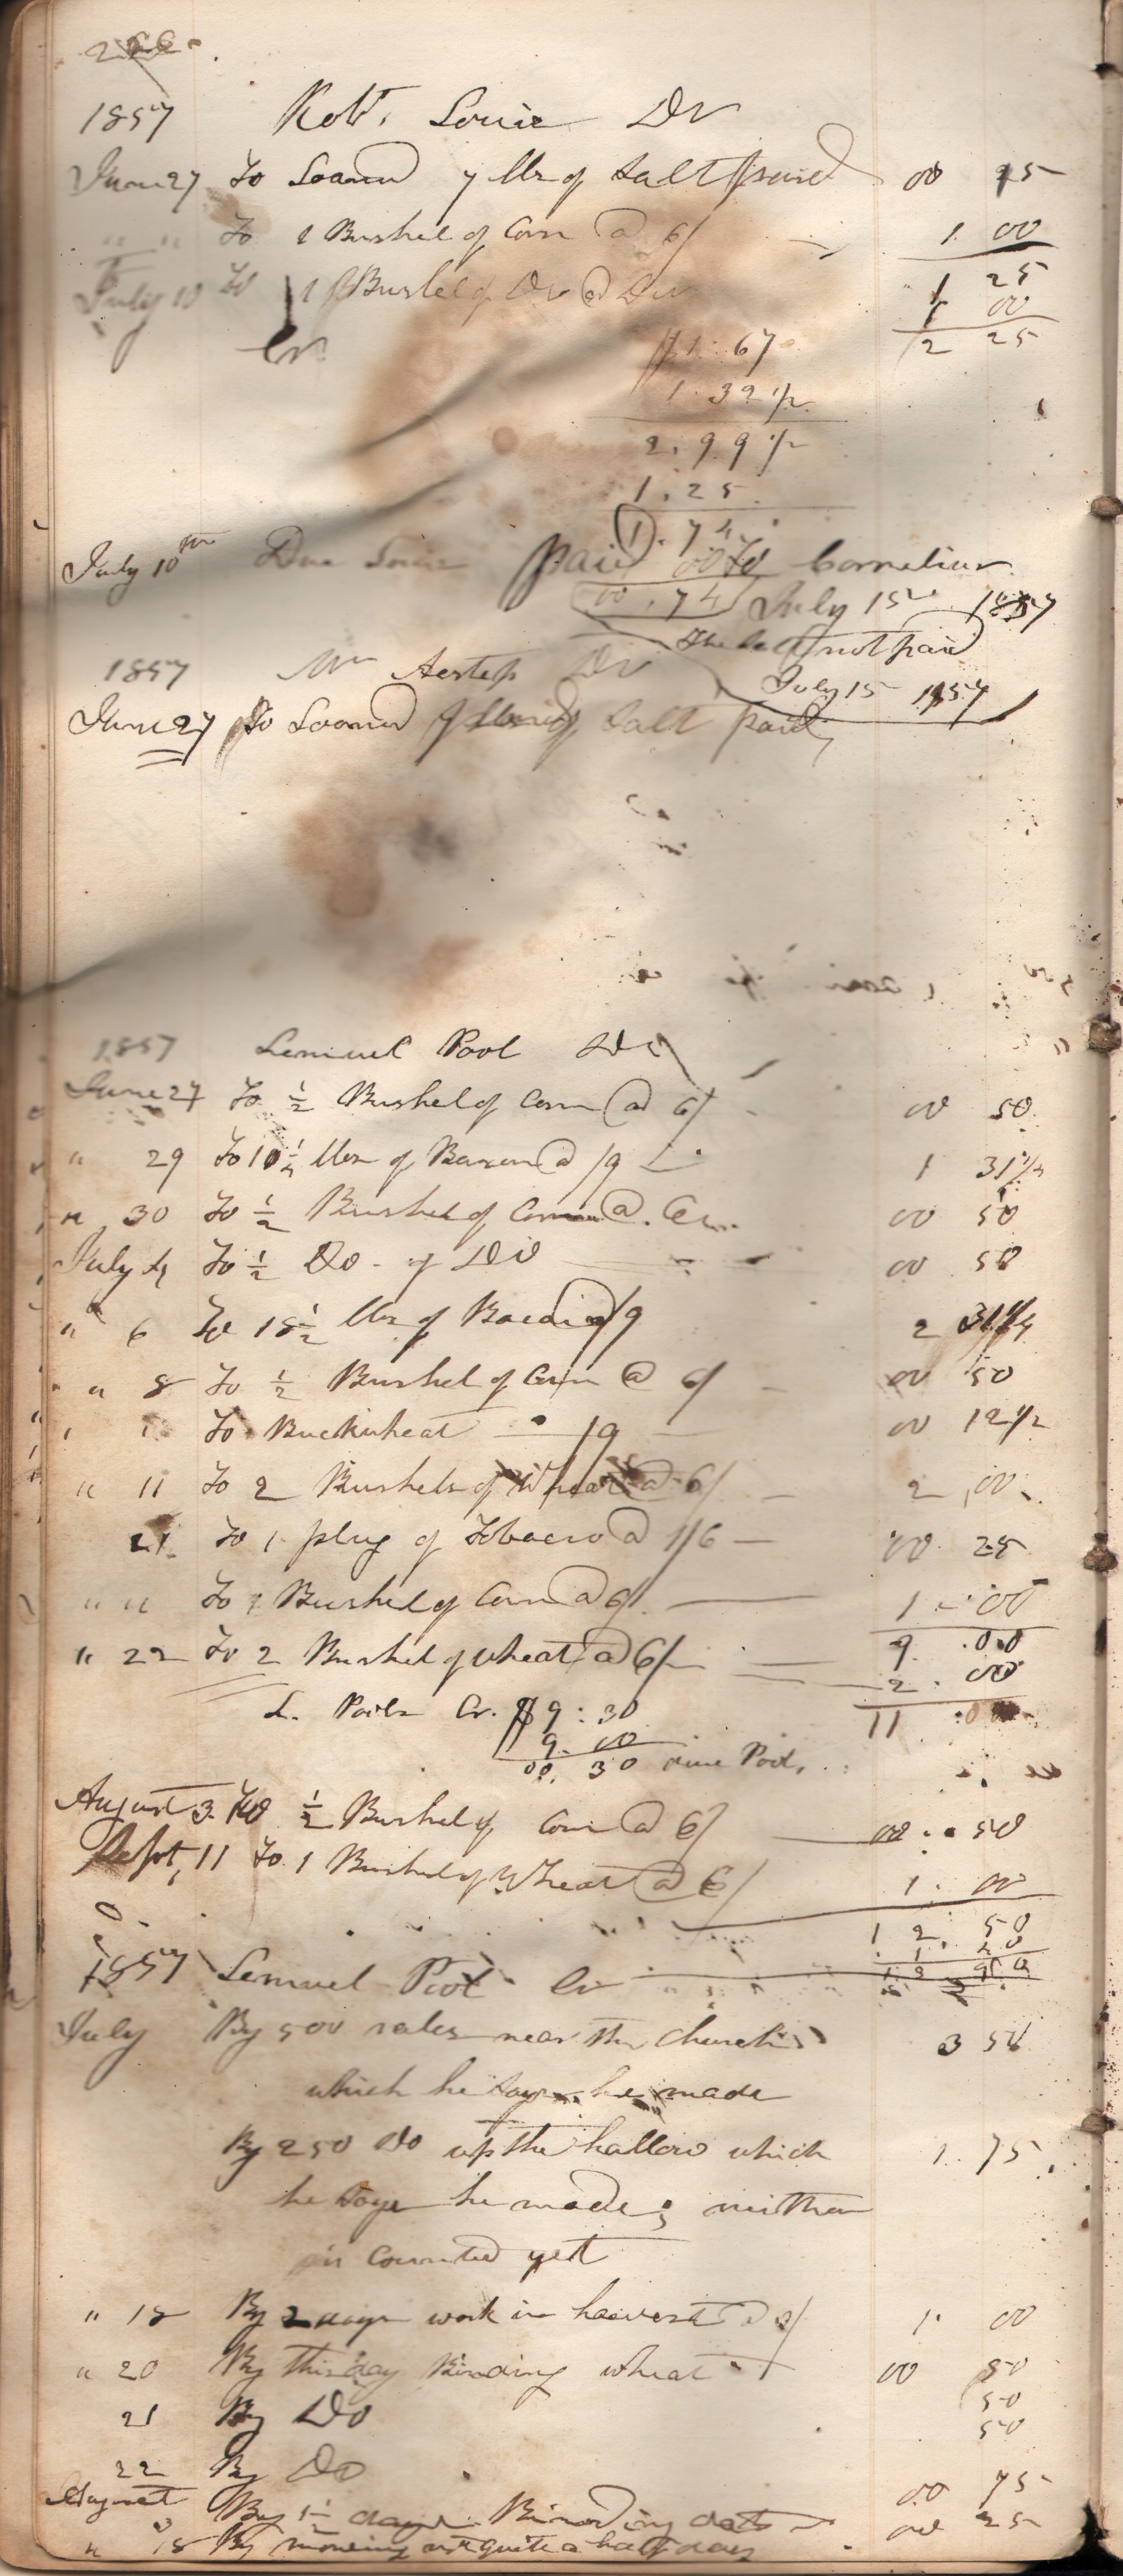 266
1857 Robt. Louie Dr
June 27 To Loaned 7 lbs of Salt paid 00 25
" " To 1 Bushel of Corn @ 6/ 1. 00
1 25
July 10 To 1 Bushel of Do @ Do 1 00
2 25
Cr
$1.67
1.32 1/2
2.99 1/2
1.25
1.74
July 10th Due Louie paid to Cornelius
00.74 July 15 1857
The salt not paid
July 15 1857
1857 Mr Aestep Dr
June 27 To Loaned of Salt paid
1857 Lemuel Pool Dr
June 27 To 1/2 Bushel of Corn @ 6/ 00 50
" 29 To 10 1/2 lbs of Bacon @ /9 1 31 1/4
" 30 To 1/2 Bushel of Corn @ 00 50
July 4 To 1/2 Do of Do 00 50
" 6 To 18 1/2 lbs of Bacon @ /9 2 31 1/4
" 8 To 1/2 Bushel of Corn @ 6/ 00 50
" " To Buckwheat /9 00 12 1/2
" 11 To 2 Bushels of Wheat @ 6/ 2 ,00
21 To 1 plug of Tobacco @ 1/6 00 25
" " To 1 Bushel of Corn @ 6/ 1 . 00
9 .00
" 22 To 2 Bushel of Wheat @ 6/ 2 . 00
11 :00
L. Pools Cr. $9:30
9.00
00.30 due Pool.
August 3 To 1/2 Bushel of Corn @ 6/ 00 . 50
Sept, 11 To 1 Bushel of Wheat @ 6/ 1. 00
12. 50
1857 Lemuel Pool Cr
July By 500 rales near the Church 3 50
which he says he made
By 250 Do up the hallow which 1. 75
he says he made; neither
is Counted yet
" 18 By 2 days work in harvest @ 1. 00
" 20 By this day Binding wheat 00 50
21 By Do 50
22 By Do 50
August By 1 1/2 days Binding oats 00 75
" 18 By mowing not quite a half day 00 25